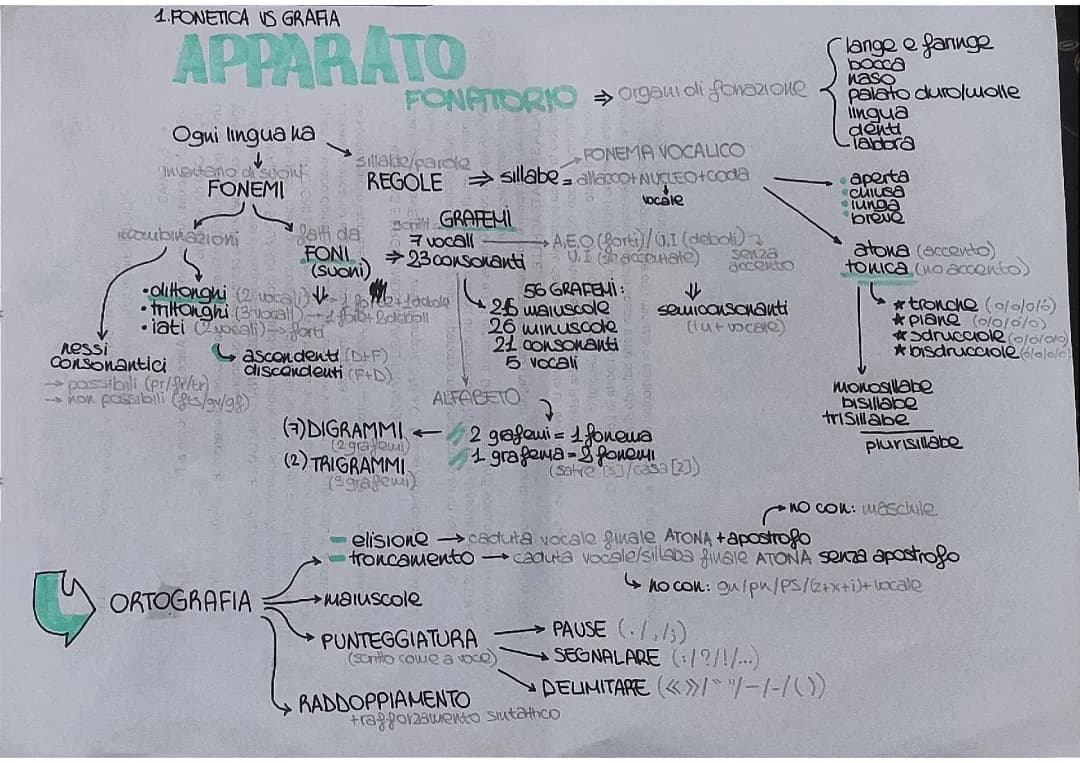 1. FONETICA VS GRAFIA
APPARATO
FONATORIO ⇒ organi di fonazione
laringe e faringe
bocca
naso
palato duro/molle
lingua
denti
labbra
Ogni lingua ha
inventario di suoni
FONEMI
sillabe/parole
REGOLE ⇒ sillabe = attacco+NUCLEO+coda
FONEMA VOCALICO
vocale
• aperta
• chiusa
• lunga
• breve
atona (accento)
tonica (no accento)
★ tronche (o/o/o/ó)
★ piane (o/o/ó/o)
★ sdrucciole (o/ó/o/o)
★ bisdrucciole (ó/o/o/o)
monosillabe
bisillabe
trisillabe
plurisillabe
ricombinazioni
fatti da
FONI
(suoni)
• dittonghi (2 vocali) → 1 forte + 1 debole
• trittonghi (3 vocali) → 1 forte + 2 deboli
• iati (2 vocali) → forti
ascendenti (D+F)
discendenti (F+D)
nessi
consonantici
→ possibili (pr/gr/tr)
→ non possibili
scritti GRAFEMI
7 vocali → A,E,O (forti)/U,I (deboli)
⇒ 23 consonanti
U,I (se accentate)
senza
accento
semiconsonanti
(iu + vocale)
56 GRAFEMI:
26 maiuscole
26 minuscole
21 consonanti
5 vocali
ALFABETO
(7) DIGRAMMI ← 2 grafemi = 1 fonema
(2 grafemi)
(2) TRIGRAMMI
(3 grafemi)
1 grafema = 2 fonemi
ORTOGRAFIA
- elisione → caduta vocale finale ATONA + apostrofo
→ no con: maschile
- troncamento → caduta vocale/sillaba finale ATONA senza apostrofo
↳ no con: gn/pn/ps/(z+x+i)+vocale
→ maiuscole
PUNTEGGIATURA
(scritto come a voce)
→ PAUSE (./,/;)
→ SEGNALARE (:/?/!/...)
→ DELIMITARE («»/" "/–/-/())
RADDOPPIAMENTO
+rafforzamento sintattico